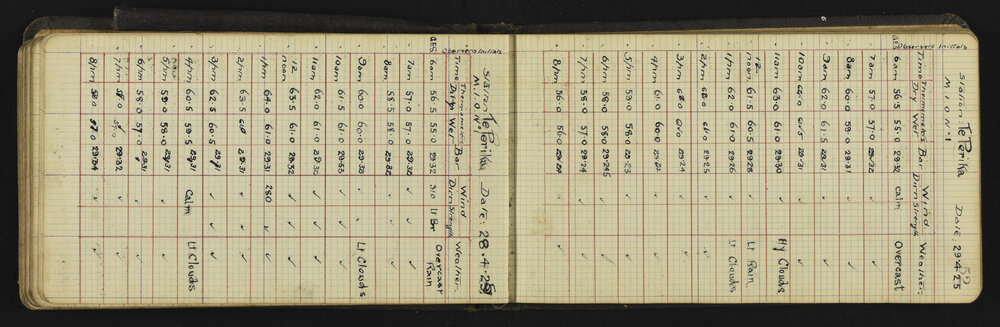 Station Te Perika Date. 28.4.25
M.I.O Nº 1
Observers Initials Time Thermometers Bar Wind Weather.
Dry. Wet. Dirn Strength
GES 6am 56.5 55.0 29.32 310 Lt Br Overcast Rain
7am 57.0 57.0 29.32 ✓ ✓
8am 58.5 58.5 29.32 ✓ ✓
9am 60.0 60.0 29.33 Lt Clouds
10am 61.5 61.0 29.33 ✓ ✓
11am 62.0 61.0 29.32 ✓ ✓
12 noon 63.5 61.0 29.32 ✓ ✓
1pm 64.0 61.0 29.31 280 ✓ ✓
2pm 63.5 29.31 ✓ ✓
3pm 62.5 60.5 29.31 ✓ ✓
4pm 60.5 59.5 29.31 Calm Lt Clouds
5pm 59.0 29.31 ✓ ✓
6pm 58.0 57.0 29.31 ✓ ✓
7pm 58.0 57.0 29.32 ✓ ✓
8pm 58.0 57.0 29.34 ✓ ✓
52
Station Te Perika Date 29.4.25
M.I.O Nº 1
Observers Initials Time Thermometers Bar Wind Weather.
Dry. Wet. Dirn Strength
GES 6am 56.5 55.0 29.32 calm Overcast
7am 57.0 57.0 29.32 ✓ ✓
8am 60.0 59.0 29.31 ✓ ✓
9am 62.0 61.5 29.31 ✓ ✓
10am 61.5 29.31 ✓ ✓
11am 63.0 61.0 29.30 ✓ Hy Clouds
12 noon 61.5 60.5 29.28 ✓ Lt Rain
1pm 62.0 61.0 29.26 ✓ Lt Clouds
2pm 61.0 29.25 ✓ ✓
3pm 61.0 29.24 ✓ ✓
4pm 61.0 60.0 ✓ ✓
5pm 59.0 58.0 29.23 ✓ ✓
6pm 58.0 58.0 ✓ ✓
7pm 58.0 57.0 29.24 ✓ ✓
8pm 56.0 56.0 ✓ ✓